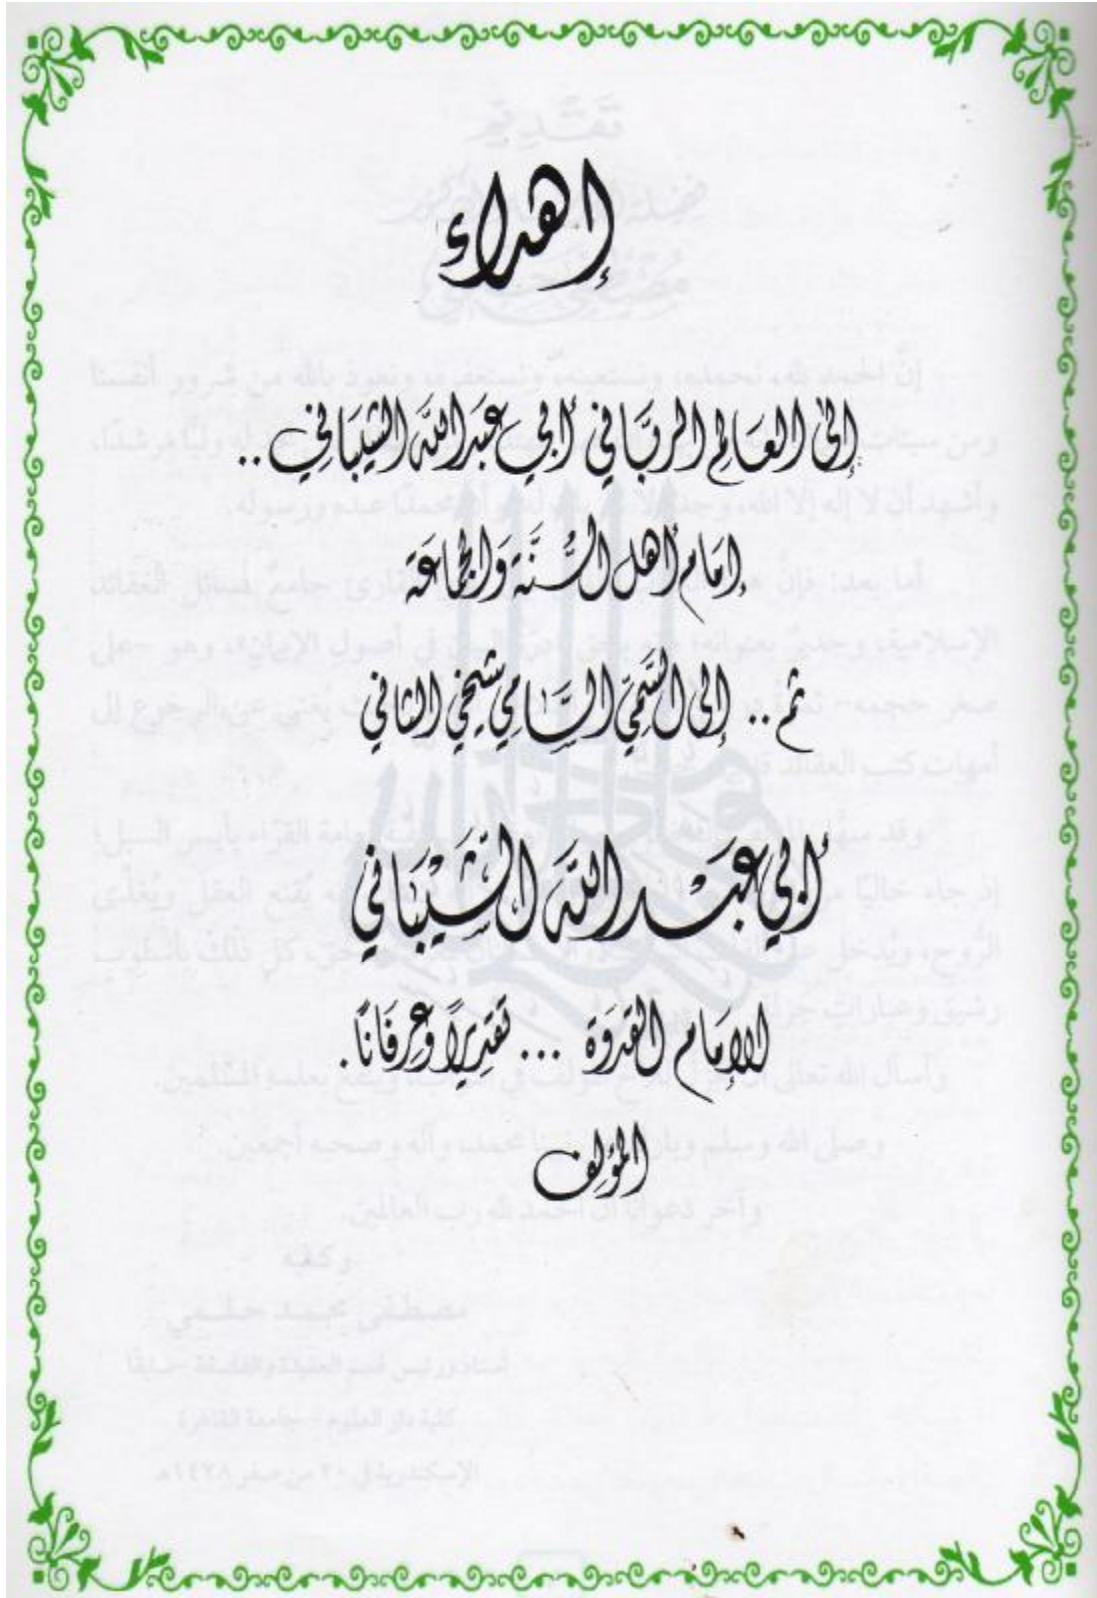 إهداء
إلى العالم الرباني أبي عبد الله الشيباني ..
إمام أهل السُّنَّة وَالجماعَة
ثم .. إلى السَّمِيِّ السَّامِي شيخي الثاني
أبي عبْد الله الشَيْبَاني
الإمام القدوَة ... تقديرًا وعِرفَانًا.
المؤلف